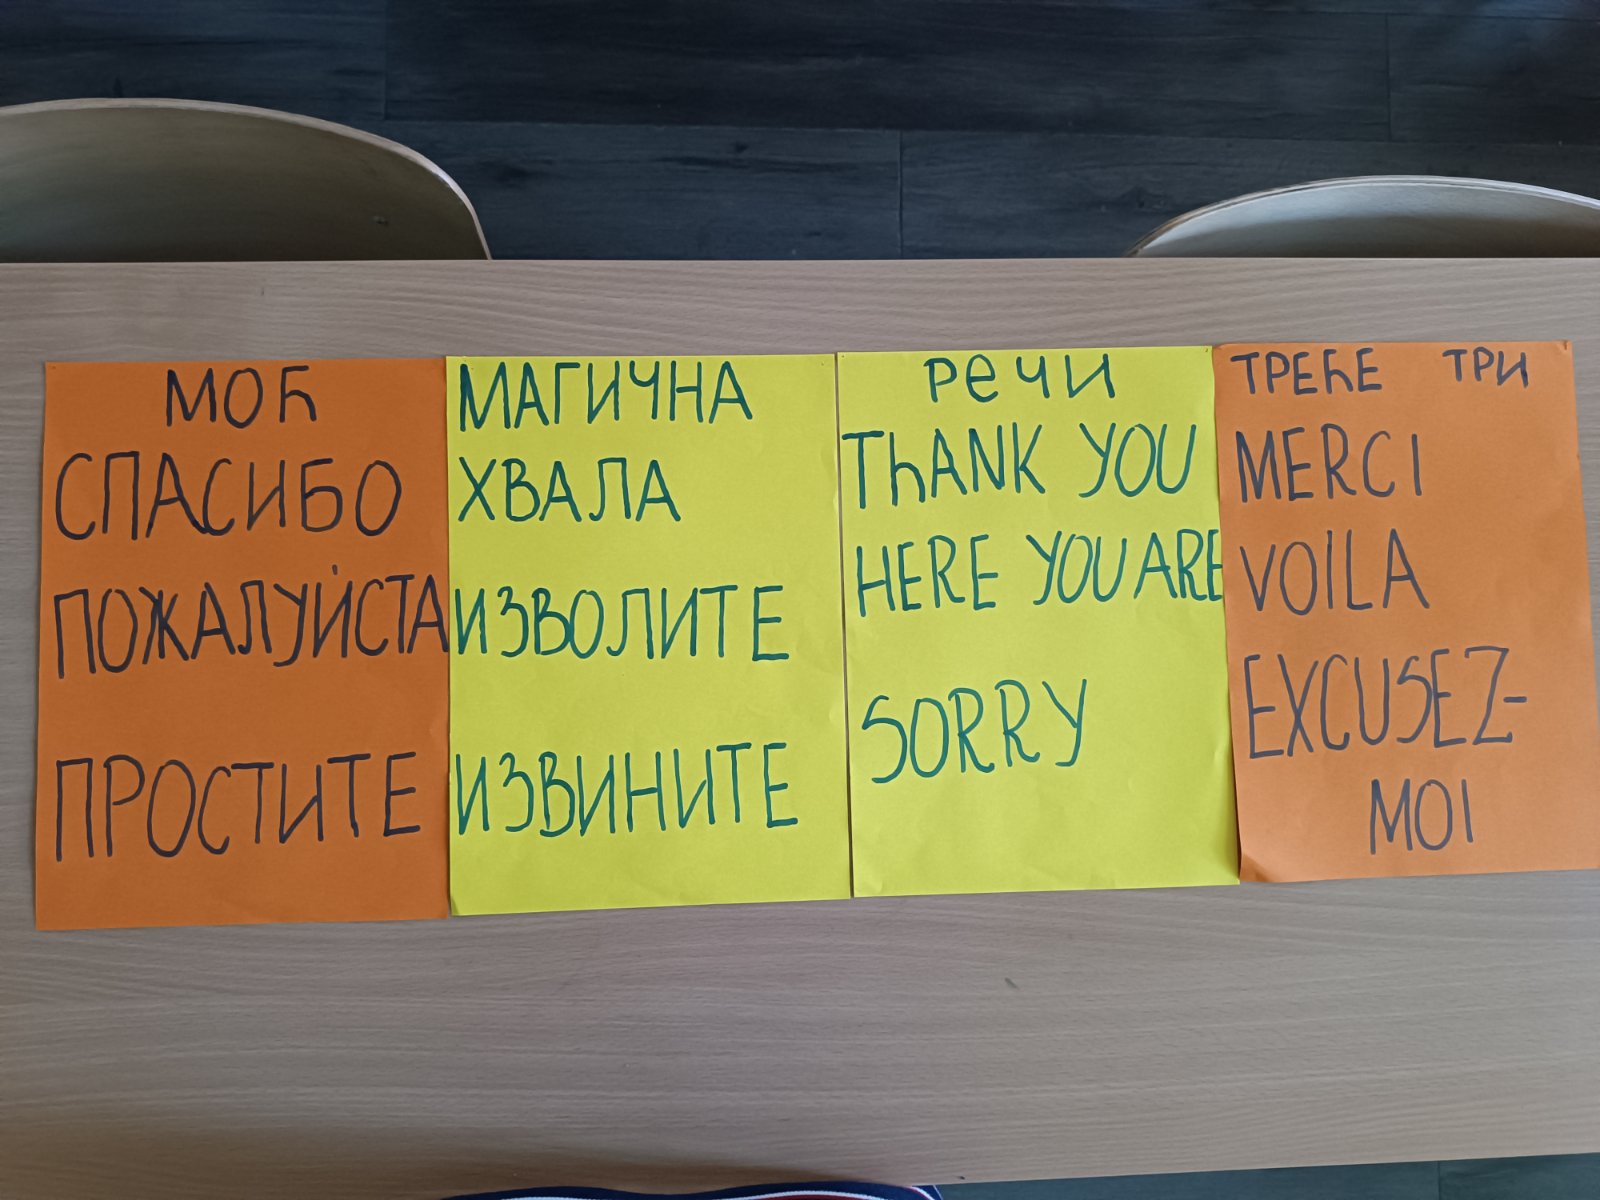 МОЋ
СПАСИБО
ПОЖАЛУЙСТА
ПРОСТИТЕ
МАГИЧНА
ХВАЛА
ИЗВОЛИТЕ
ИЗВИНИТЕ
РеЧИ
THANK YOU
HERE YOU ARE
SORRY
ТРЕЋЕ ТРИ
MERCI
VOILA
EXCUSEZ-
MOI